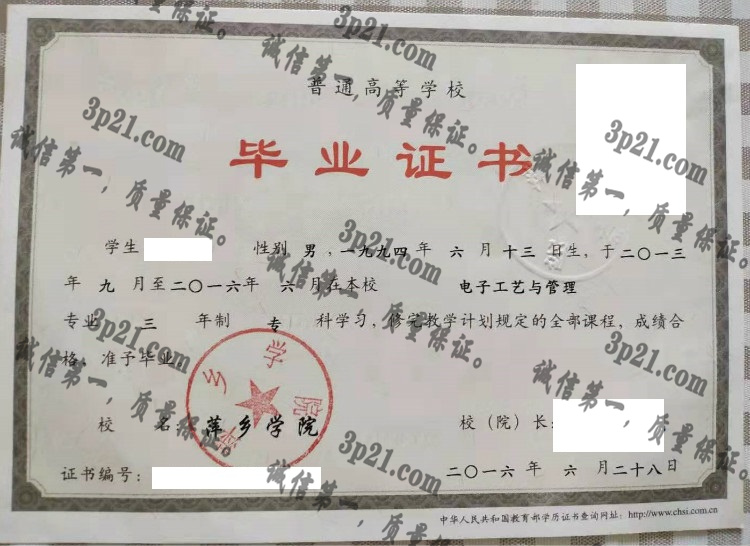 普通高等学校
毕业证书
学生 性别 男，一九九四年 六 月 十三 日生，于二〇一三
年 九 月至二〇一六年 六 月在本校 电子工艺与管理
专业 三 年制 专 科学习，修完教学计划规定的全部课程，成绩合
格，准予毕业。
校 名：萍乡学院
校（院）长：
证书编号：
二〇一六年 六 月二十八日
中华人民共和国教育部学历证书查询网址：http://www.chsi.com.cn
萍乡学院
3p21.com
诚信第一，质量保证。
3p21.com
诚信第一，质量保证。
3p21.com
诚信第一，质量保证。
3p21.com
诚信第一，质量保证。
3p21.com
诚信第一，质量保证。
3p21.com
诚信第一，质量保证。
3p21.com
诚信第一，质量保证。